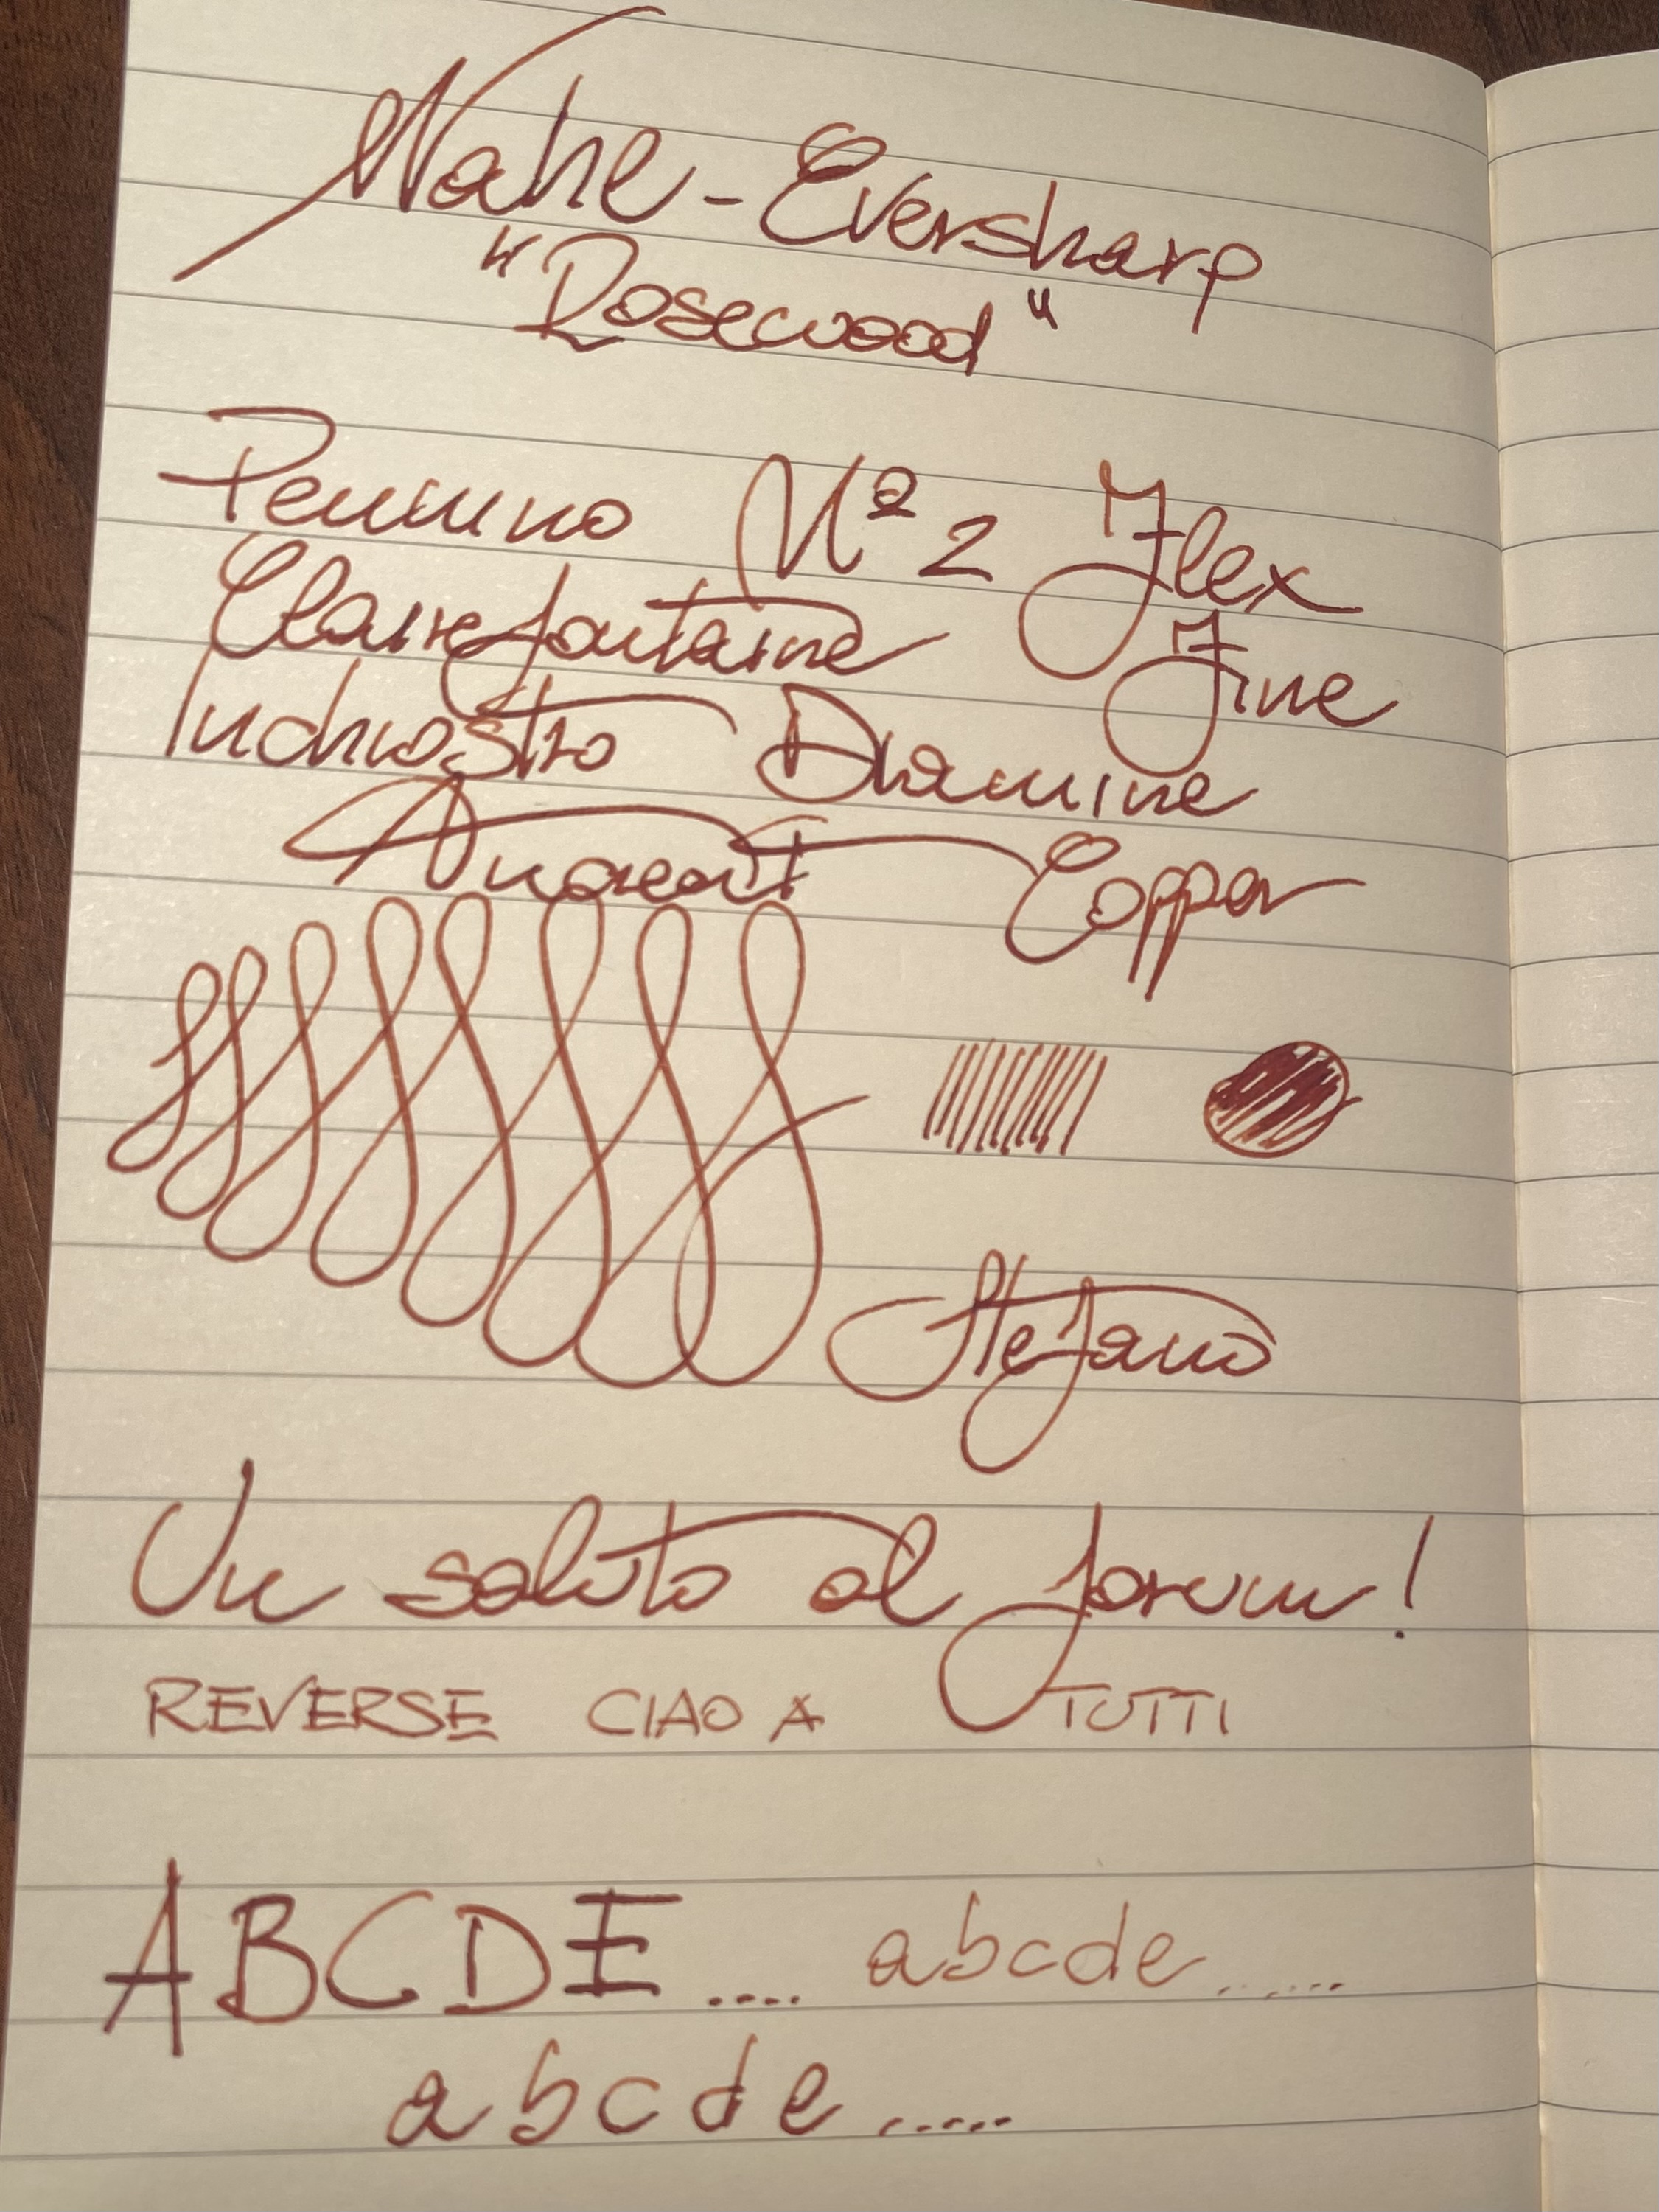 Wahl-Eversharp
"Rosewood"
Pennino Nº 2 Flex
Clairefontaine Fine
Inchiostro Diamine
Ancient Copper
Stefano
Un saluto al forum!
REVERSE CIAO A TUTTI
ABCDE.... abcde......
abcde.....